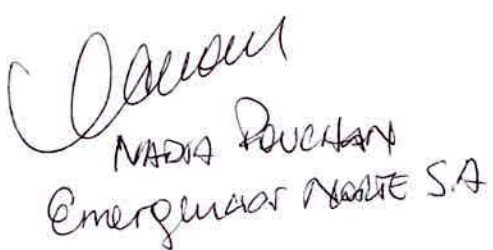 NADIA POUCHAN
Emergencias NORTE S.A